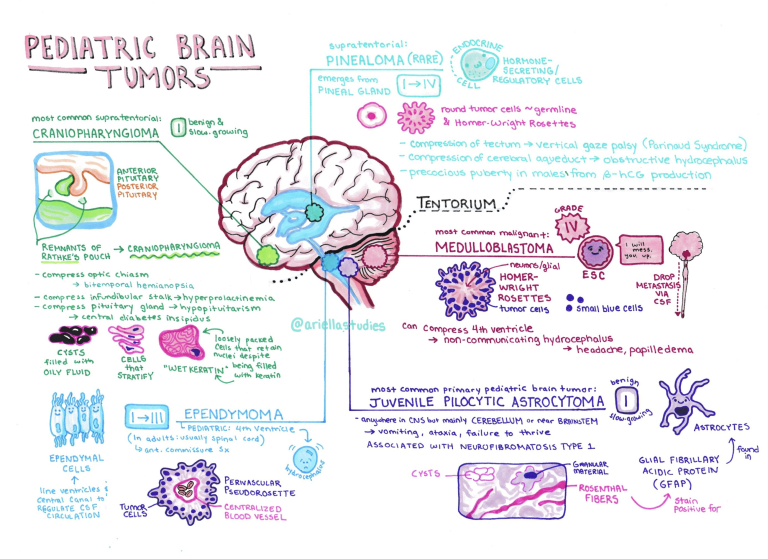 PEDIATRIC BRAIN
TUMORS
supratentorial:
PINEALOMA (RARE)
emerges from
PINEAL GLAND
I → IV
ENDOCRINE
CELL
HORMONE-
SECRETING/
REGULATORY CELLS
round tumor cells ~ germline
& Homer-Wright Rosettes
- compression of tectum → vertical gaze palsy (Parinaud Syndrome)
- compression of cerebral aqueduct → obstructive hydrocephalus
- precocious puberty in males from β-hCG production
most common supratentorial:
CRANIOPHARYNGIOMA
I
benign &
slow-growing
ANTERIOR
PITUITARY
POSTERIOR
PITUITARY
REMNANTS OF
RATHKE'S POUCH
→ CRANIOPHARYNGIOMA
- compress optic chiasm
→ bitemporal hemianopsia
- compress infundibular stalk → hyperprolactinemia
- compress pituitary gland → hypopituitarism
→ central diabetes insipidus
CYSTS
filled with
OILY FLUID
CELLS
that
STRATIFY
"WET KERATIN"
loosely packed
cells that retain
nuclei despite
being filled
with keratin
TENTORIUM
most common malignant:
MEDULLOBLASTOMA
GRADE
IV
ESC
I will
mess.
you up.
DROP
METASTASIS
VIA
CSF
neurons/glial
HOMER-
WRIGHT
ROSETTES
tumor cells
small blue cells
can compress 4th ventricle
→ non-communicating hydrocephalus
→ headache, papilledema
@ariellastudies
I → III
EPENDYMOMA
PEDIATRIC: 4th ventricle
(In adults: usually spinal cord)
↳ ant. commissure 3x
EPENDYMAL
CELLS
line ventricles &
central canal to
REGULATE CSF
CIRCULATION
TUMOR
CELLS
PERIVASCULAR
PSEUDOROSETTE
CENTRALIZED
BLOOD VESSEL
most common primary pediatric brain tumor:
JUVENILE PILOCYTIC ASTROCYTOMA
benign
I
slow growing
- anywhere in CNS but mainly CEREBELLUM or near BRAINSTEM
→ vomiting, ataxia, failure to thrive
ASSOCIATED WITH NEUROFIBROMATOSIS TYPE 1
ASTROCYTES
found in
GLIAL FIBRILLARY
ACIDIC PROTEIN
(GFAP)
Stain
positive for
CYSTS
GRANULAR
MATERIAL
ROSENTHAL
FIBERS